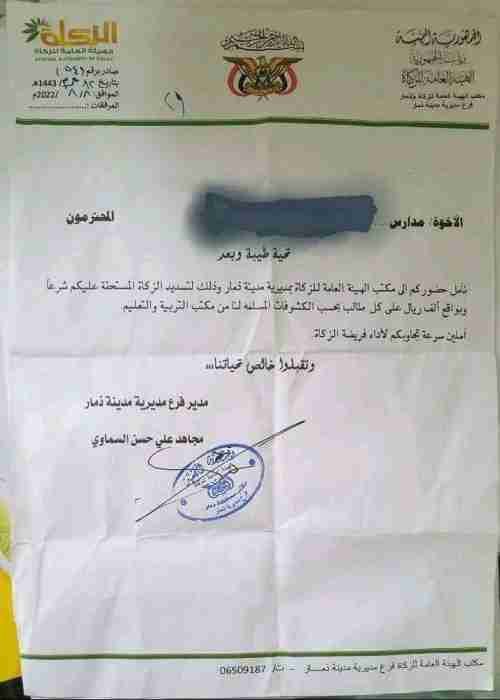 الجمهورية اليمنية
رئاسة الجمهورية
الهيئة العامة للزكاة
مكتب الهيئة العامة للزكاة م/ذمار
فرع مديرية مدينة ذمار
بسم الله الرحمن الرحيم
الزكاة
الهيئة العامة للزكاة
صادر برقم (541)
بتاريخ / /1443هـ
الموافق: 8/8/2022م
المرفقات:
الأخوة/ مدارس المحترمون
تحية طيبة وبعد
نأمل حضوركم الى مكتب الهيئة العامة للزكاة بمديرية مدينة ذمار وذلك لتسديد الزكاة المستحقة عليكم شرعاً
وبواقع ألف ريال على كل طالب بحسب الكشوفات المسلمه لنا من مكتب التربية والتعليم.
آملين سرعة تجاوبكم لأداء فريضة الزكاة.
وتقبلوا خالص تحياتنا،،،
مدير فرع مديرية مدينة ذمار
مجاهد علي حسن السماوي
مكتب الهيئة العامة للزكاة فرع مديرية مدينة ذمار - ت/ 06509187